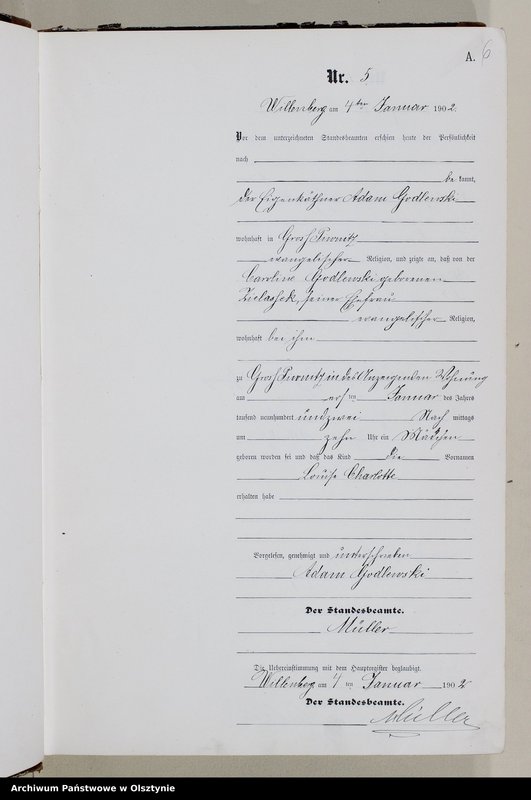 A. 6
Nr. 5
Willenberg am 4ten Januar 1902.
Vor dem unterzeichneten Standesbeamten erschien heute der Persönlichkeit
nach
be kannt,
der Eigenkäthner Adam Godlewski
wohnhaft in Groß Piwnitz
evangelischer Religion, und zeigte an, daß von der
Caroline Godlewski geborenen
Zielaschek, seiner Ehefrau
evangelischer Religion,
wohnhaft bei ihm
zu Groß Piwnitz in des Anzeigenden Wohnung
am ersten Januar des Jahres
tausend neunhundert und zwei Nach mittags
um zehn Uhr ein Mädchen
geboren worden sei und daß das Kind die Vornamen
Louise Charlotte
erhalten habe
Vorgelesen, genehmigt und unterschrieben
Adam Godlewski
Der Standesbeamte.
Müller
Die Uebereinstimmung mit dem Hauptregister beglaubigt.
Willenberg am 4 ten Januar 1902
Der Standesbeamte.
Müller
Archiwum Państwowe w Olsztynie